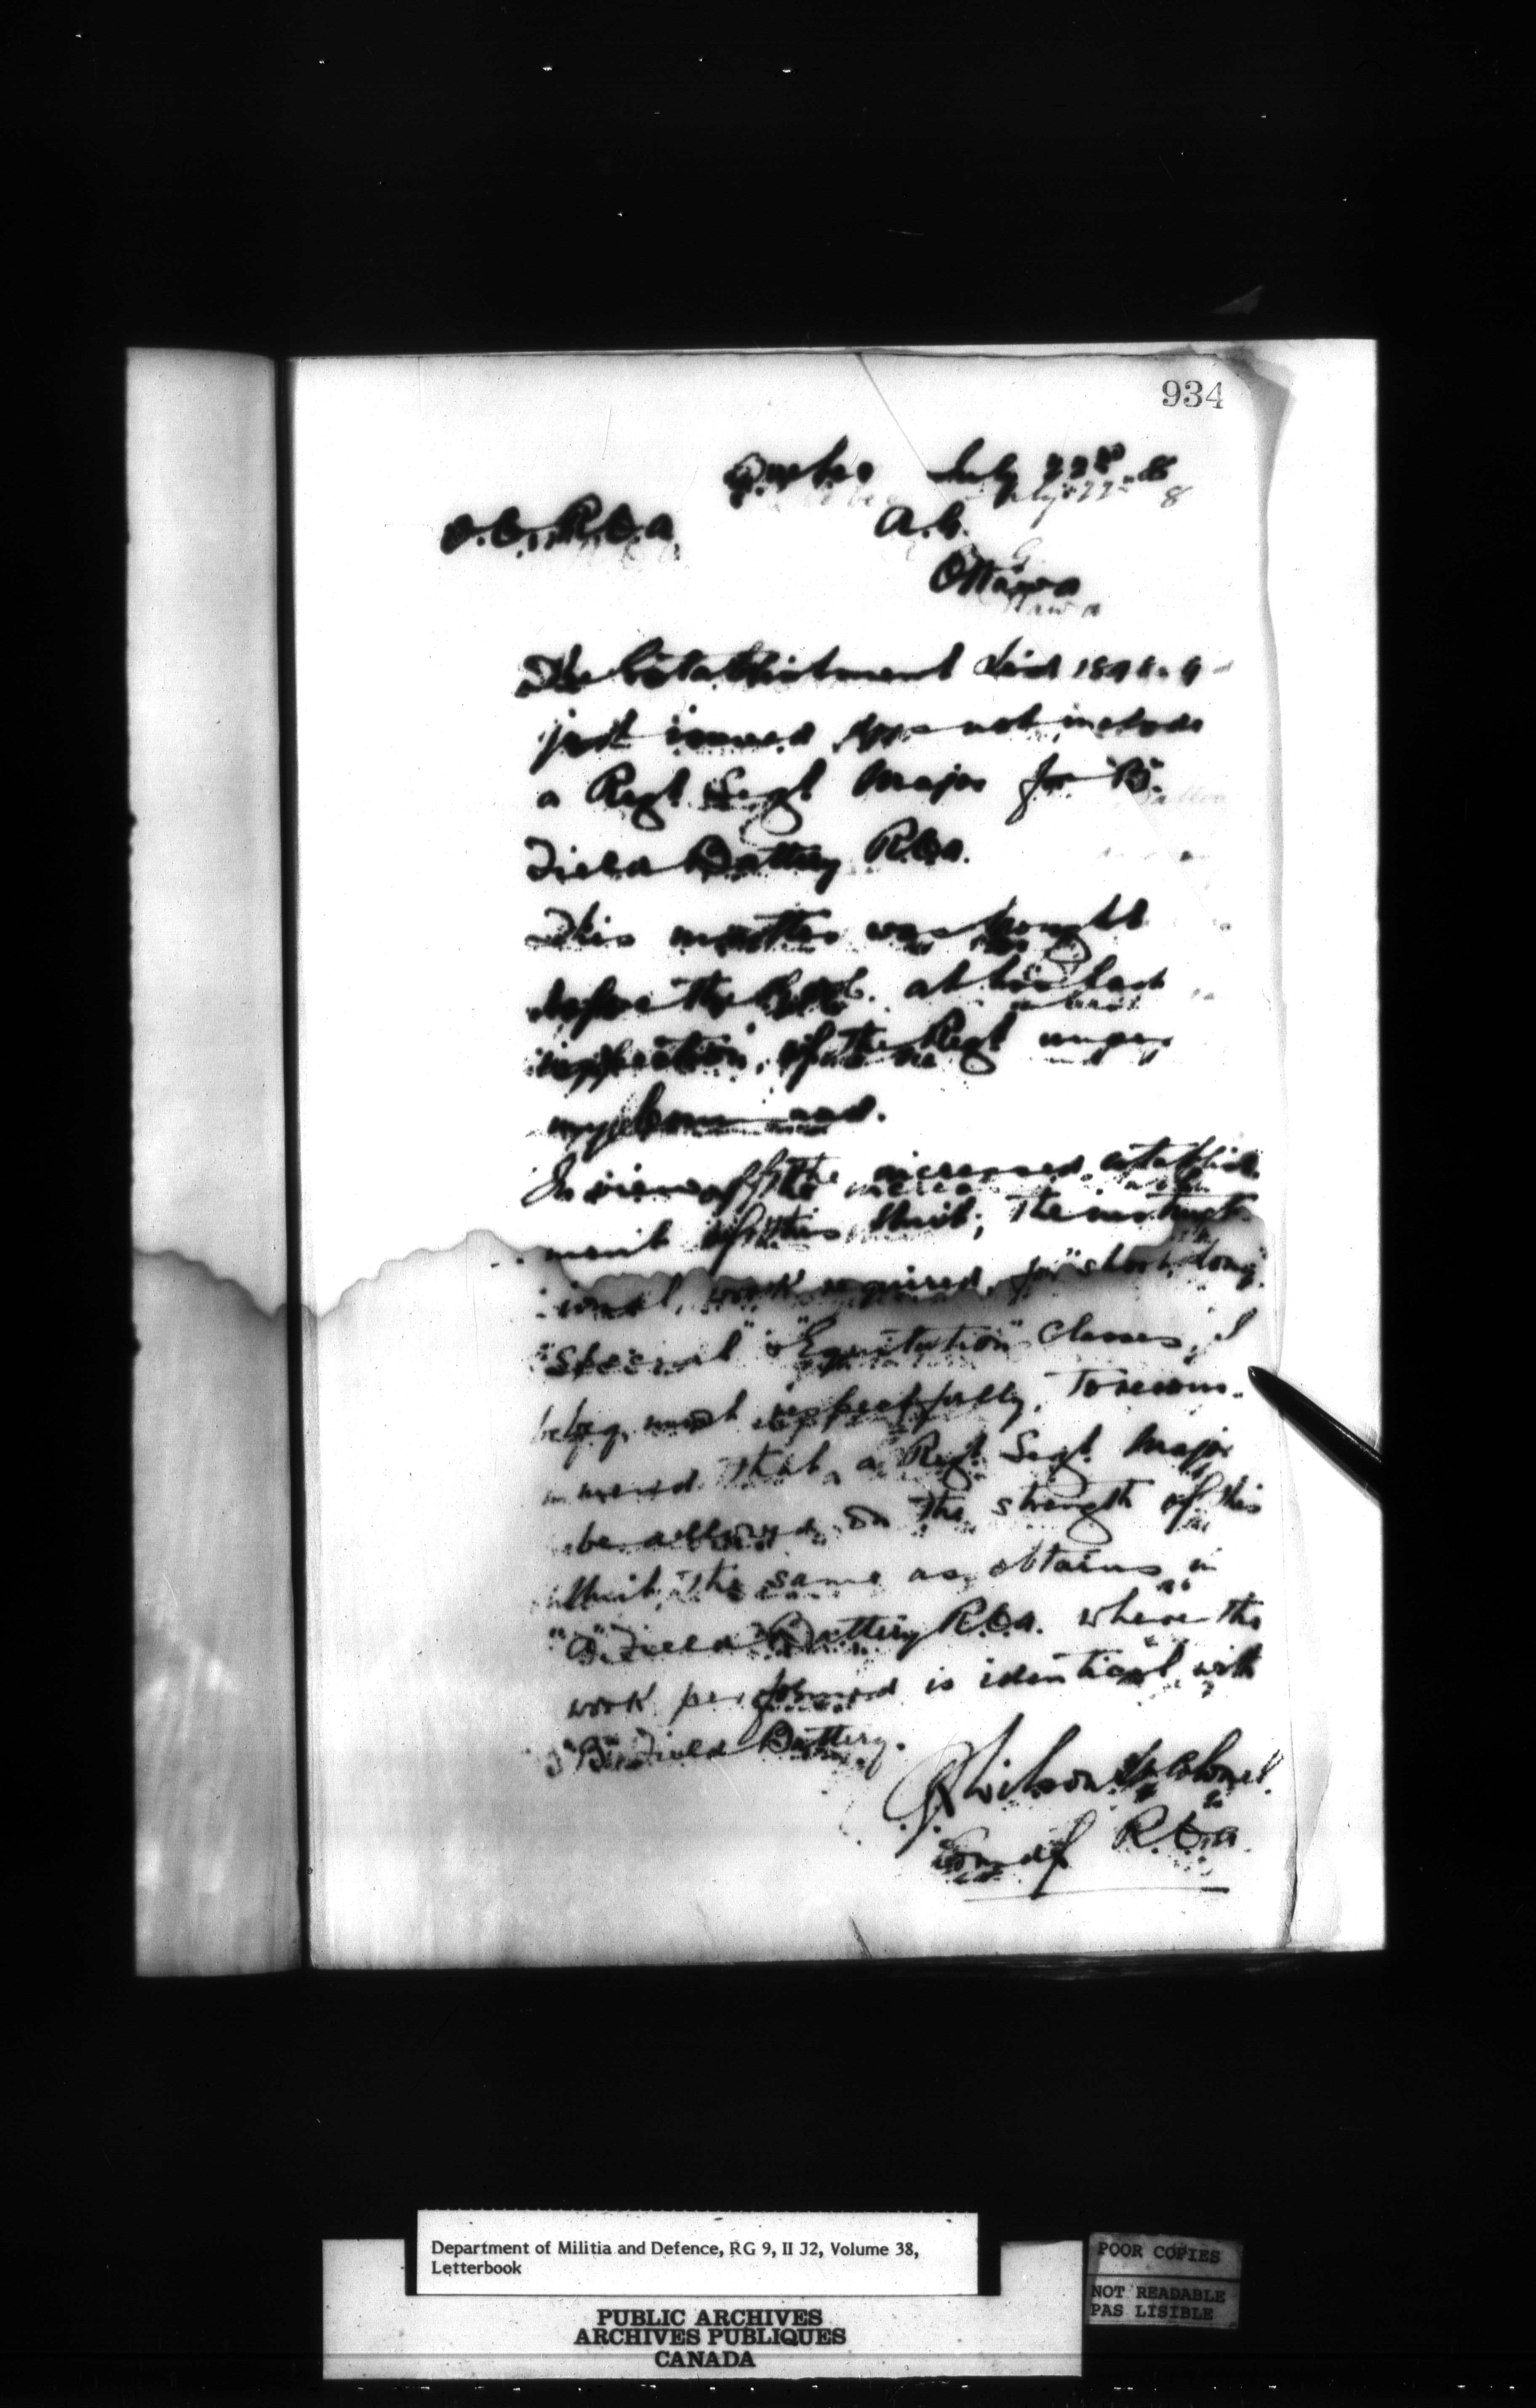 934
Quebec July 22nd 98
O.C. R.C.A. A.G.
Ottawa
The Establishment List 1898-9
just issued does not include
a Regt Sergt Major for "B"
Field Battery R.C.A.
This matter was brought
before the G.O.C. at his last
inspection, of the Regt under
my command.
In view of the increased establish
ment of this Unit, the instruct-
ional, work required, for "short, long"
"Special" & "Equitation" Classes, I
beg, most respectfully, to recom-
mend that a Regt Sergt Major
be allowed on the strength of this
Unit, the same as obtains in
"A" Field Battery R.C.A. where the
work performed is identical with
"B" Field Battery.
Wilson Lt Colonel
Comdg R.C.A.
Department of Militia and Defence, RG 9, II J2, Volume 38,
Letterbook
PUBLIC ARCHIVES
ARCHIVES PUBLIQUES
CANADA
POOR COPIES
NOT READABLE
PAS LISIBLE